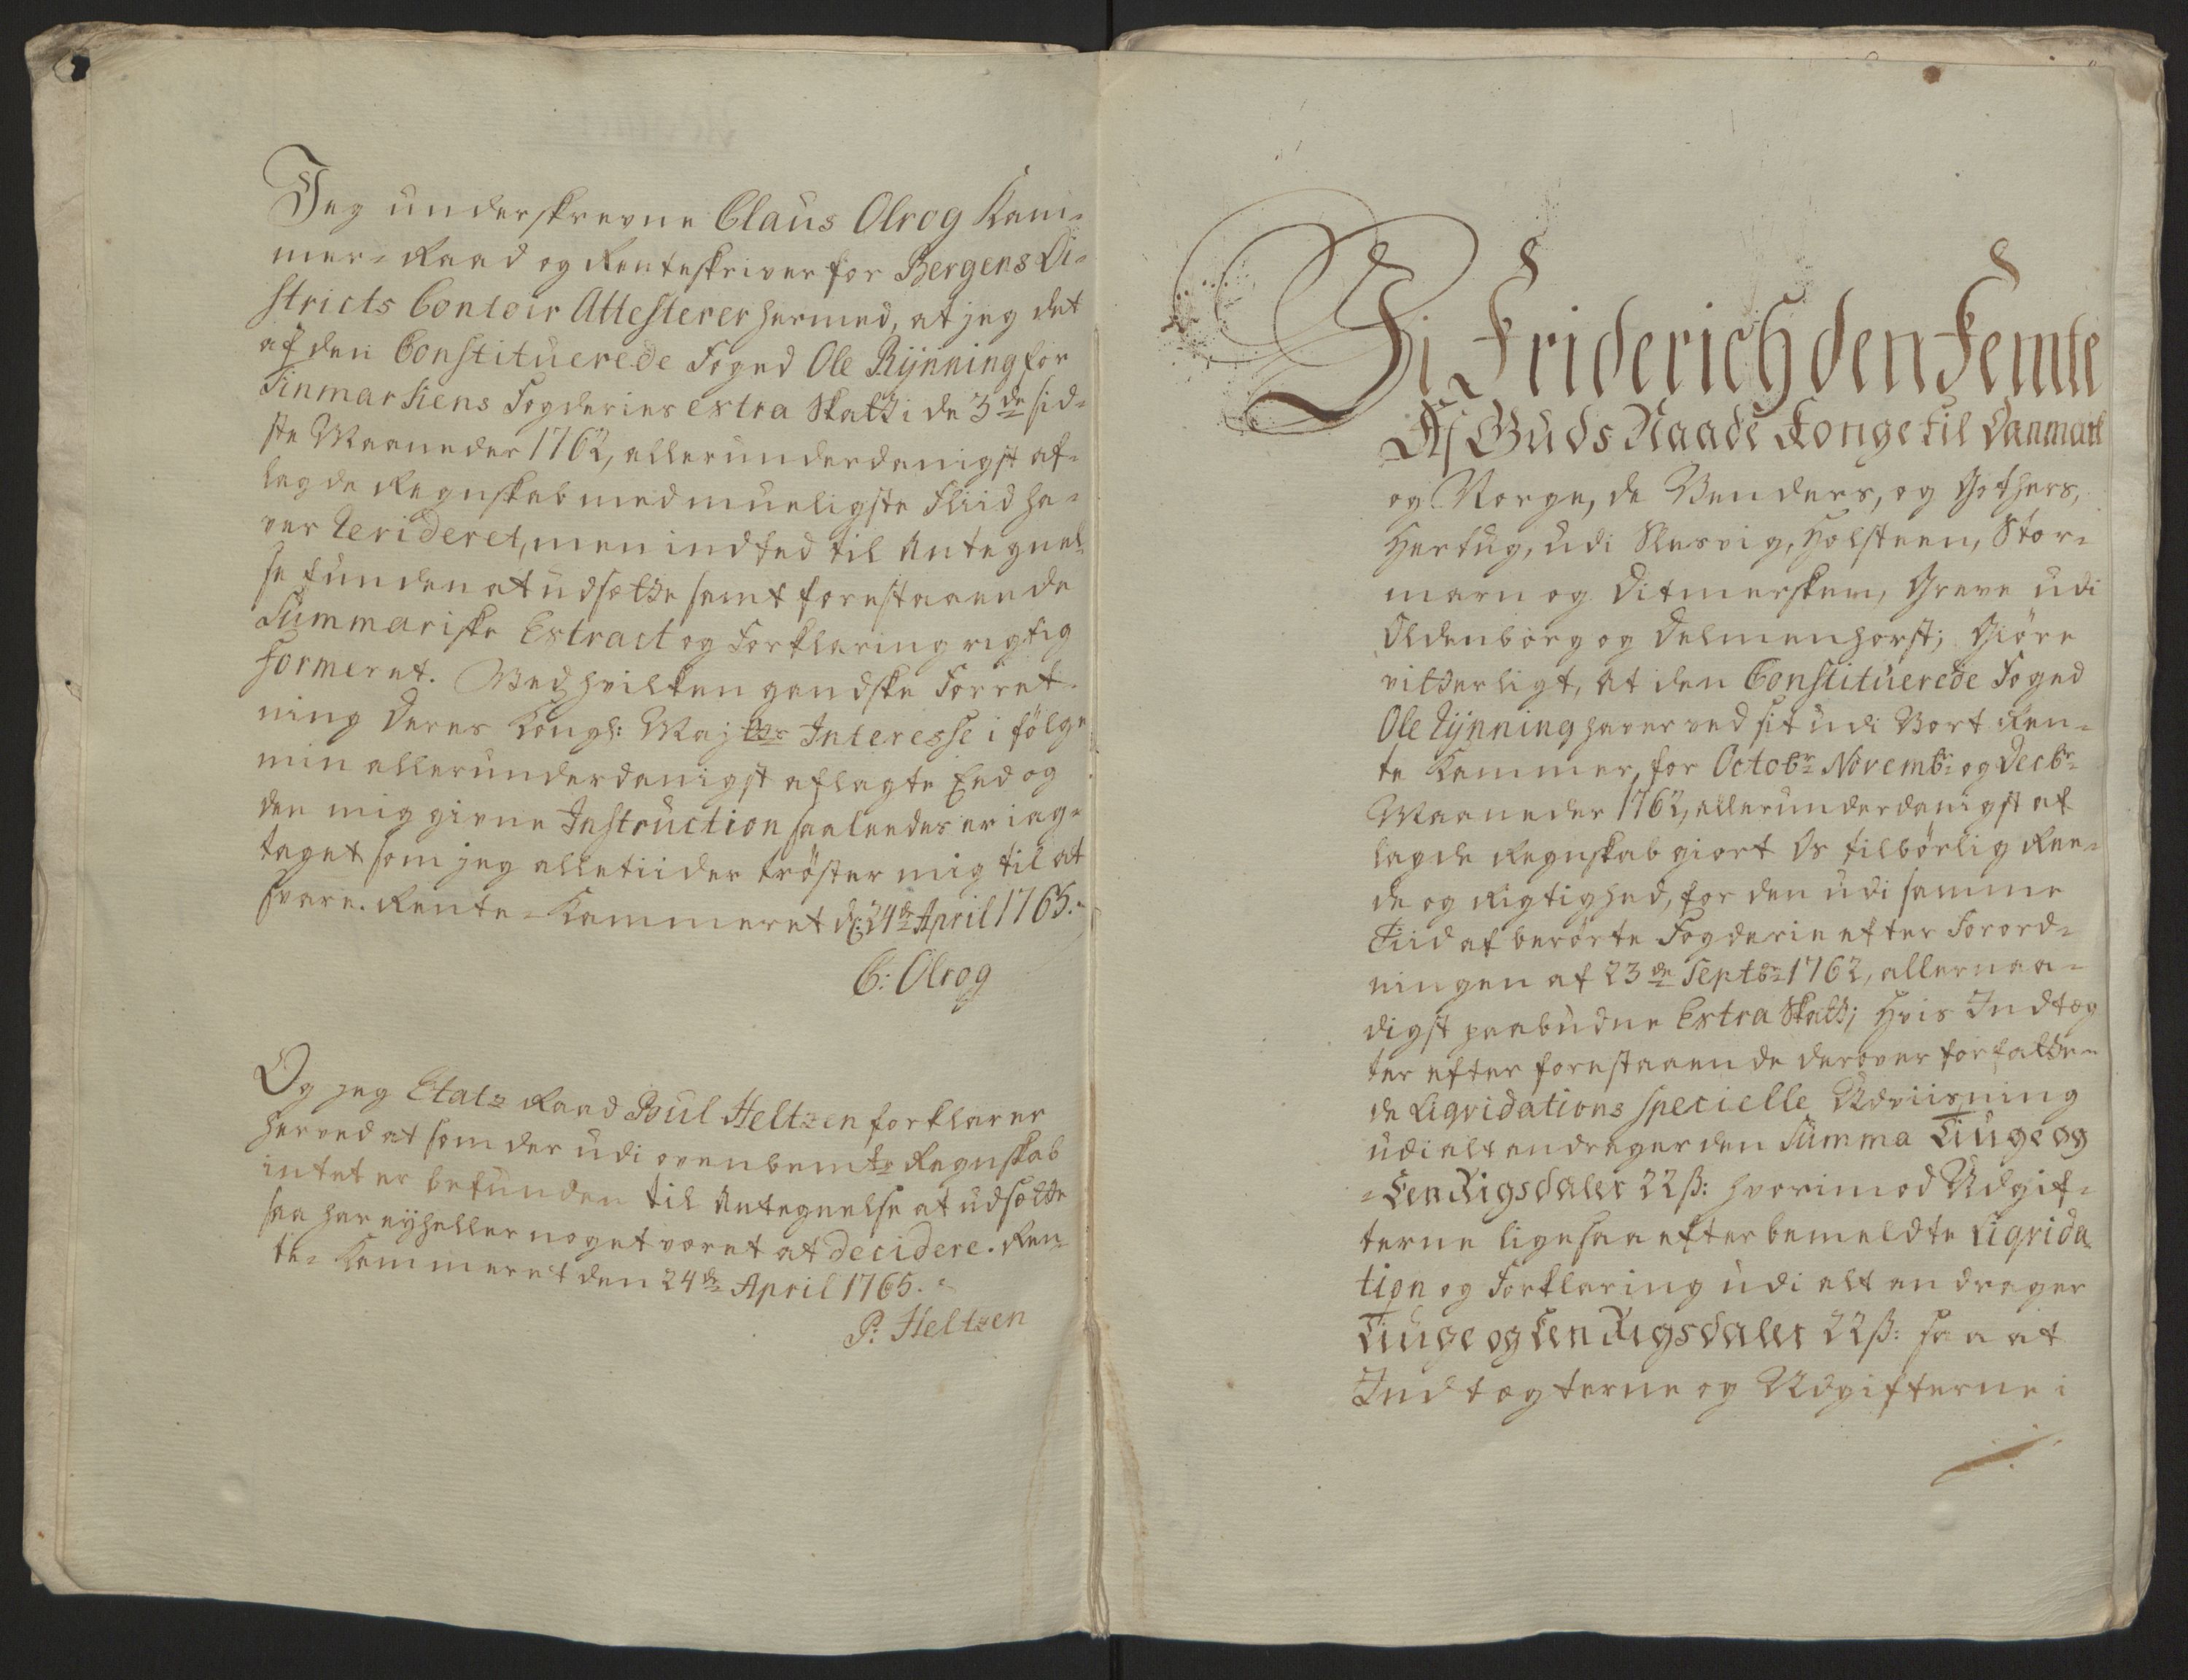 Jeg underskrevne Claus Olrog Kam-
mer-Raad og Renteskriver for Bergens Di-
stricts Contoir Attesterer hermed, at jeg det
af den Constituerede Foged Ole Rÿnning for
Finmarkens Fogderies extra Skatt i de 3de sid-
ste Maaneder 1762, allerunderdanigst af-
lagde Regnskab med mueligste Fliid ha-
ver Revideret, men indted til Antegnel-
se funden at udsætte samt forestaaende
Summariske Extract og Forklaring rigtig
formeret. Ved hvilken gandske Forret-
ning Deres Kongl: Majts Interesse i følge
min allerunderdanigst aflagte Eed og
den mig givne Instruction saaledes er iag-
taget som jeg alletiider trøster mig til at
svare. Rente-Kammeret d: 24de April 1765.
C: Olrog
Og jeg Etatz Raad Poul Heltzen forklarer
herved at som der udi ovenbemte Regnskab
intet er befunden til Antegnelse at udsætte
saa har eÿheller noget været at decidere. Ren-
te-Kammeret den 24de April 1765.
P: Heltzen
Vi Friderich den Femte
Af Guds Naade Konge til Danmark
og Norge, de Venders, og Gothers,
Hertug, udi Slesvig, Holsteen, Stor-
marn og Ditmersken, Greve udi
Oldenborg og Delmenhorst; Giøre
vitterligt, at den Constituerede Foged
Ole Rÿnning haver ved sit udi Vort Ren-
te Kammer, for Octobr Novembr og Decbr
Maaneder 1762, allerunderdanigst af
lagde Regnskab giort Os tilbørlig Ree-
de og Rigtighed, for den udi samme
Tiid af berørte Fogderie efter Forord-
ningen af 23de Septbr 1762, allernaa-
digst paabudne Extra Skatt; Hvis Indtæg
ter efter forestaaende derover forfatte-
de Liqvidations specielle Udviisning
udi alt andrager den Summa Tiuge og
-Een Rigsdaler 22 ß: hvorimod Udgif-
terne ligesaa efter bemeldte Liqvida-
tion og Forklaring udi alt andrager
Tiuge og Een Rigsdaler 22 ß: saa at
Indtægterne og Udgifterne i